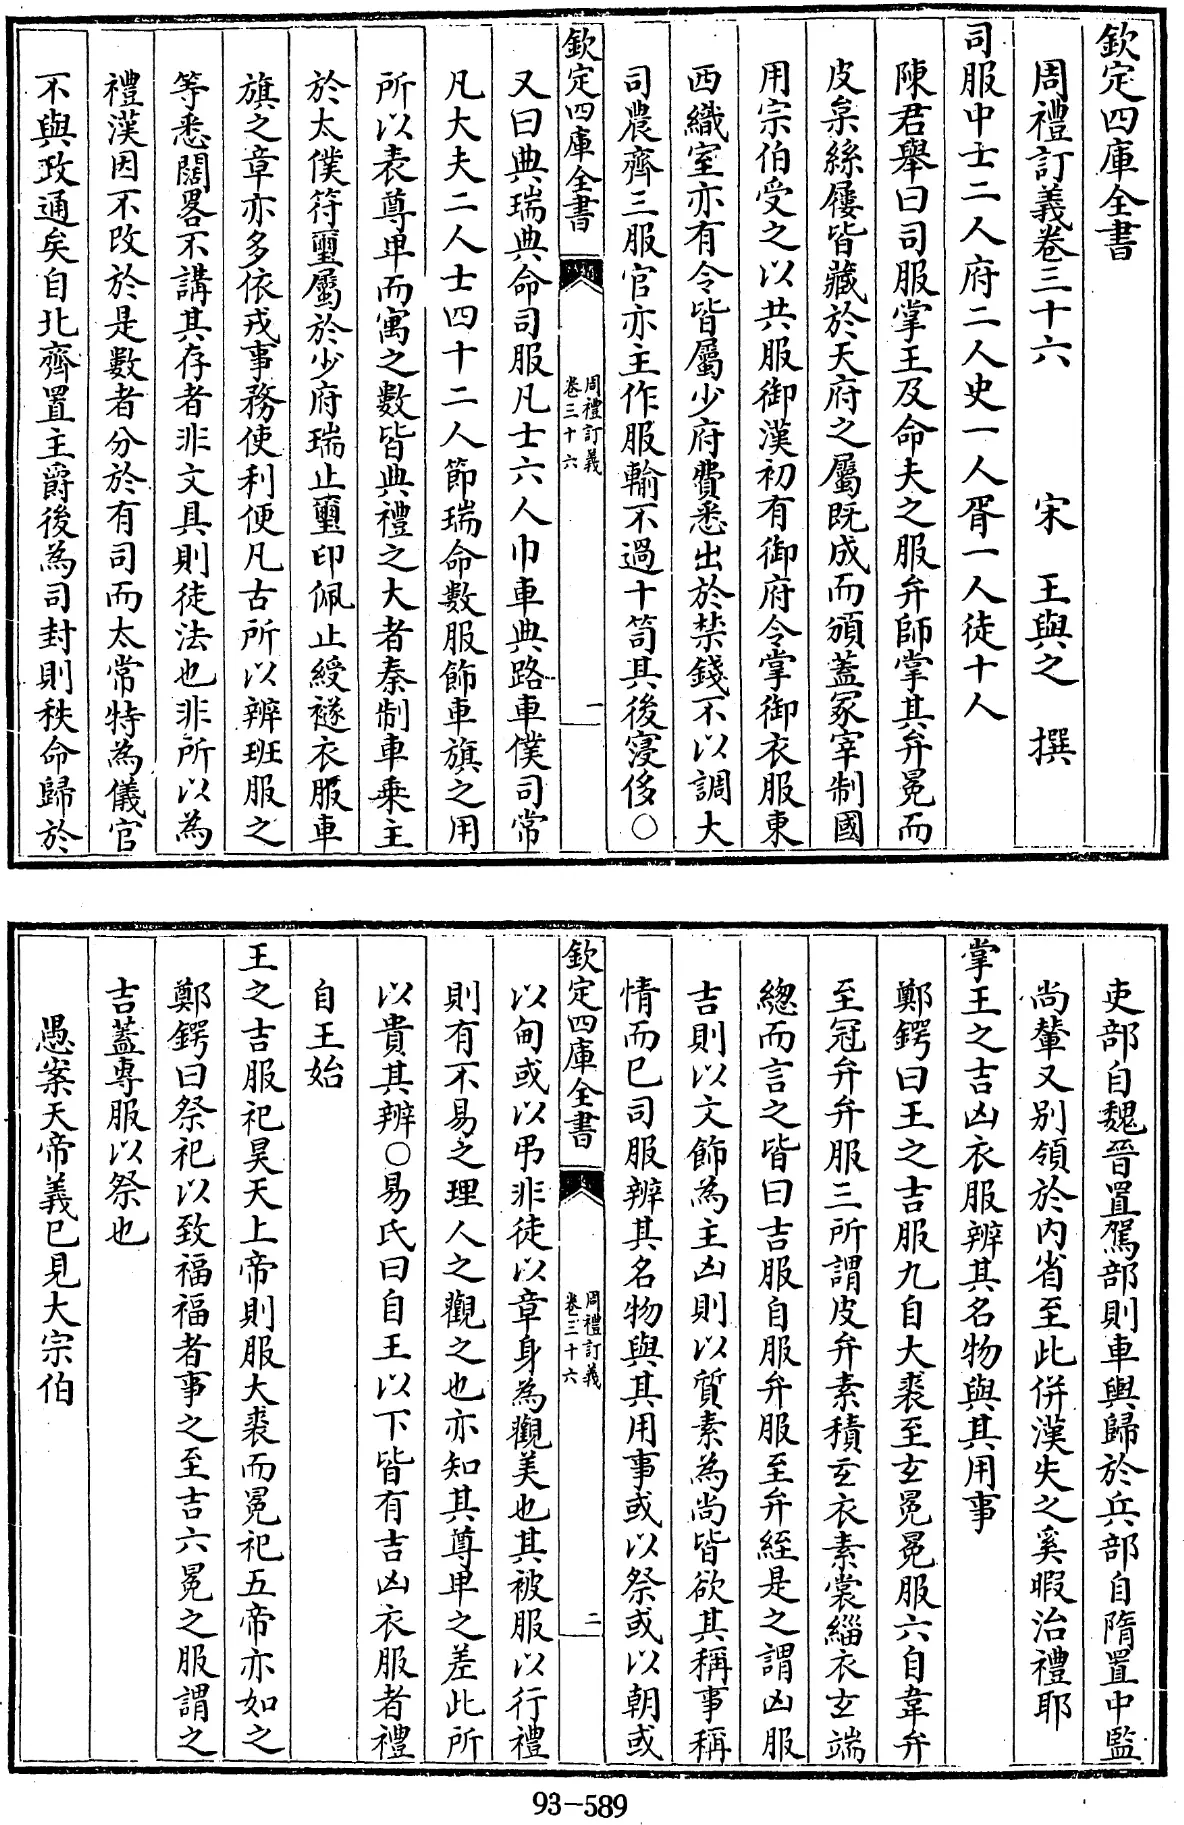 欽定四庫全書
周禮訂義卷三十六　宋　王與之　撰
司服中士二人府二人史一人胥一人徒十人
陳君舉曰司服掌王及命夫之服弁師掌其弁冕而
皮枲絲屨皆藏於天府之屬既成而頒蓋冢宰制國
用宗伯受之以共服御漢初有御府令掌御衣服東
西織室亦有令皆屬少府費悉出於禁錢不以調大
司農齊三服官亦主作服輸不過十笥其後寖侈○
欽定四庫全書
周禮訂義
卷三十六
一
又曰典瑞典命司服凡士六人巾車典路車僕司常
凡大夫二人士四十二人節瑞命數服飾車旗之用
所以表尊卑而寓之數皆典禮之大者秦制車乗主
於太僕符璽屬於少府瑞止璽印佩止綬襚衣服車
旗之章亦多依戎事務使利便凡古所以辨班服之
等悉闊畧不講其存者非文具則徒法也非所以為
禮漢因不改於是數者分於有司而太常特為儀官
不與政通矣自北齊置主爵後為司封則秩命歸於
吏部自魏晉置駕部則車輿歸於兵部自隋置中監
尚輦又别領於内省至此併漢失之奚暇治禮耶
掌王之吉凶衣服辨其名物與其用事
鄭鍔曰王之吉服九自大裘至玄冕冕服六自韋弁
至冠弁弁服三所謂皮弁素積玄衣素裳緇衣玄端
總而言之皆曰吉服自服弁服至弁絰是之謂凶服
吉則以文飾為主凶則以質素為尚皆欲其稱事稱
情而已司服辨其名物與其用事或以祭或以朝或
欽定四庫全書
周禮訂義
卷三十六
二
以甸或以弔非徒以章身為觀美也其被服以行禮
則有不易之理人之觀之也亦知其尊卑之差此所
以貴其辨○易氏曰自王以下皆有吉凶衣服者禮
自王始
王之吉服祀昊天上帝則服大裘而冕祀五帝亦如之
鄭鍔曰祭祀以致福福者事之至吉六冕之服謂之
吉蓋專服以祭也
愚案天帝義已見大宗伯
93-589